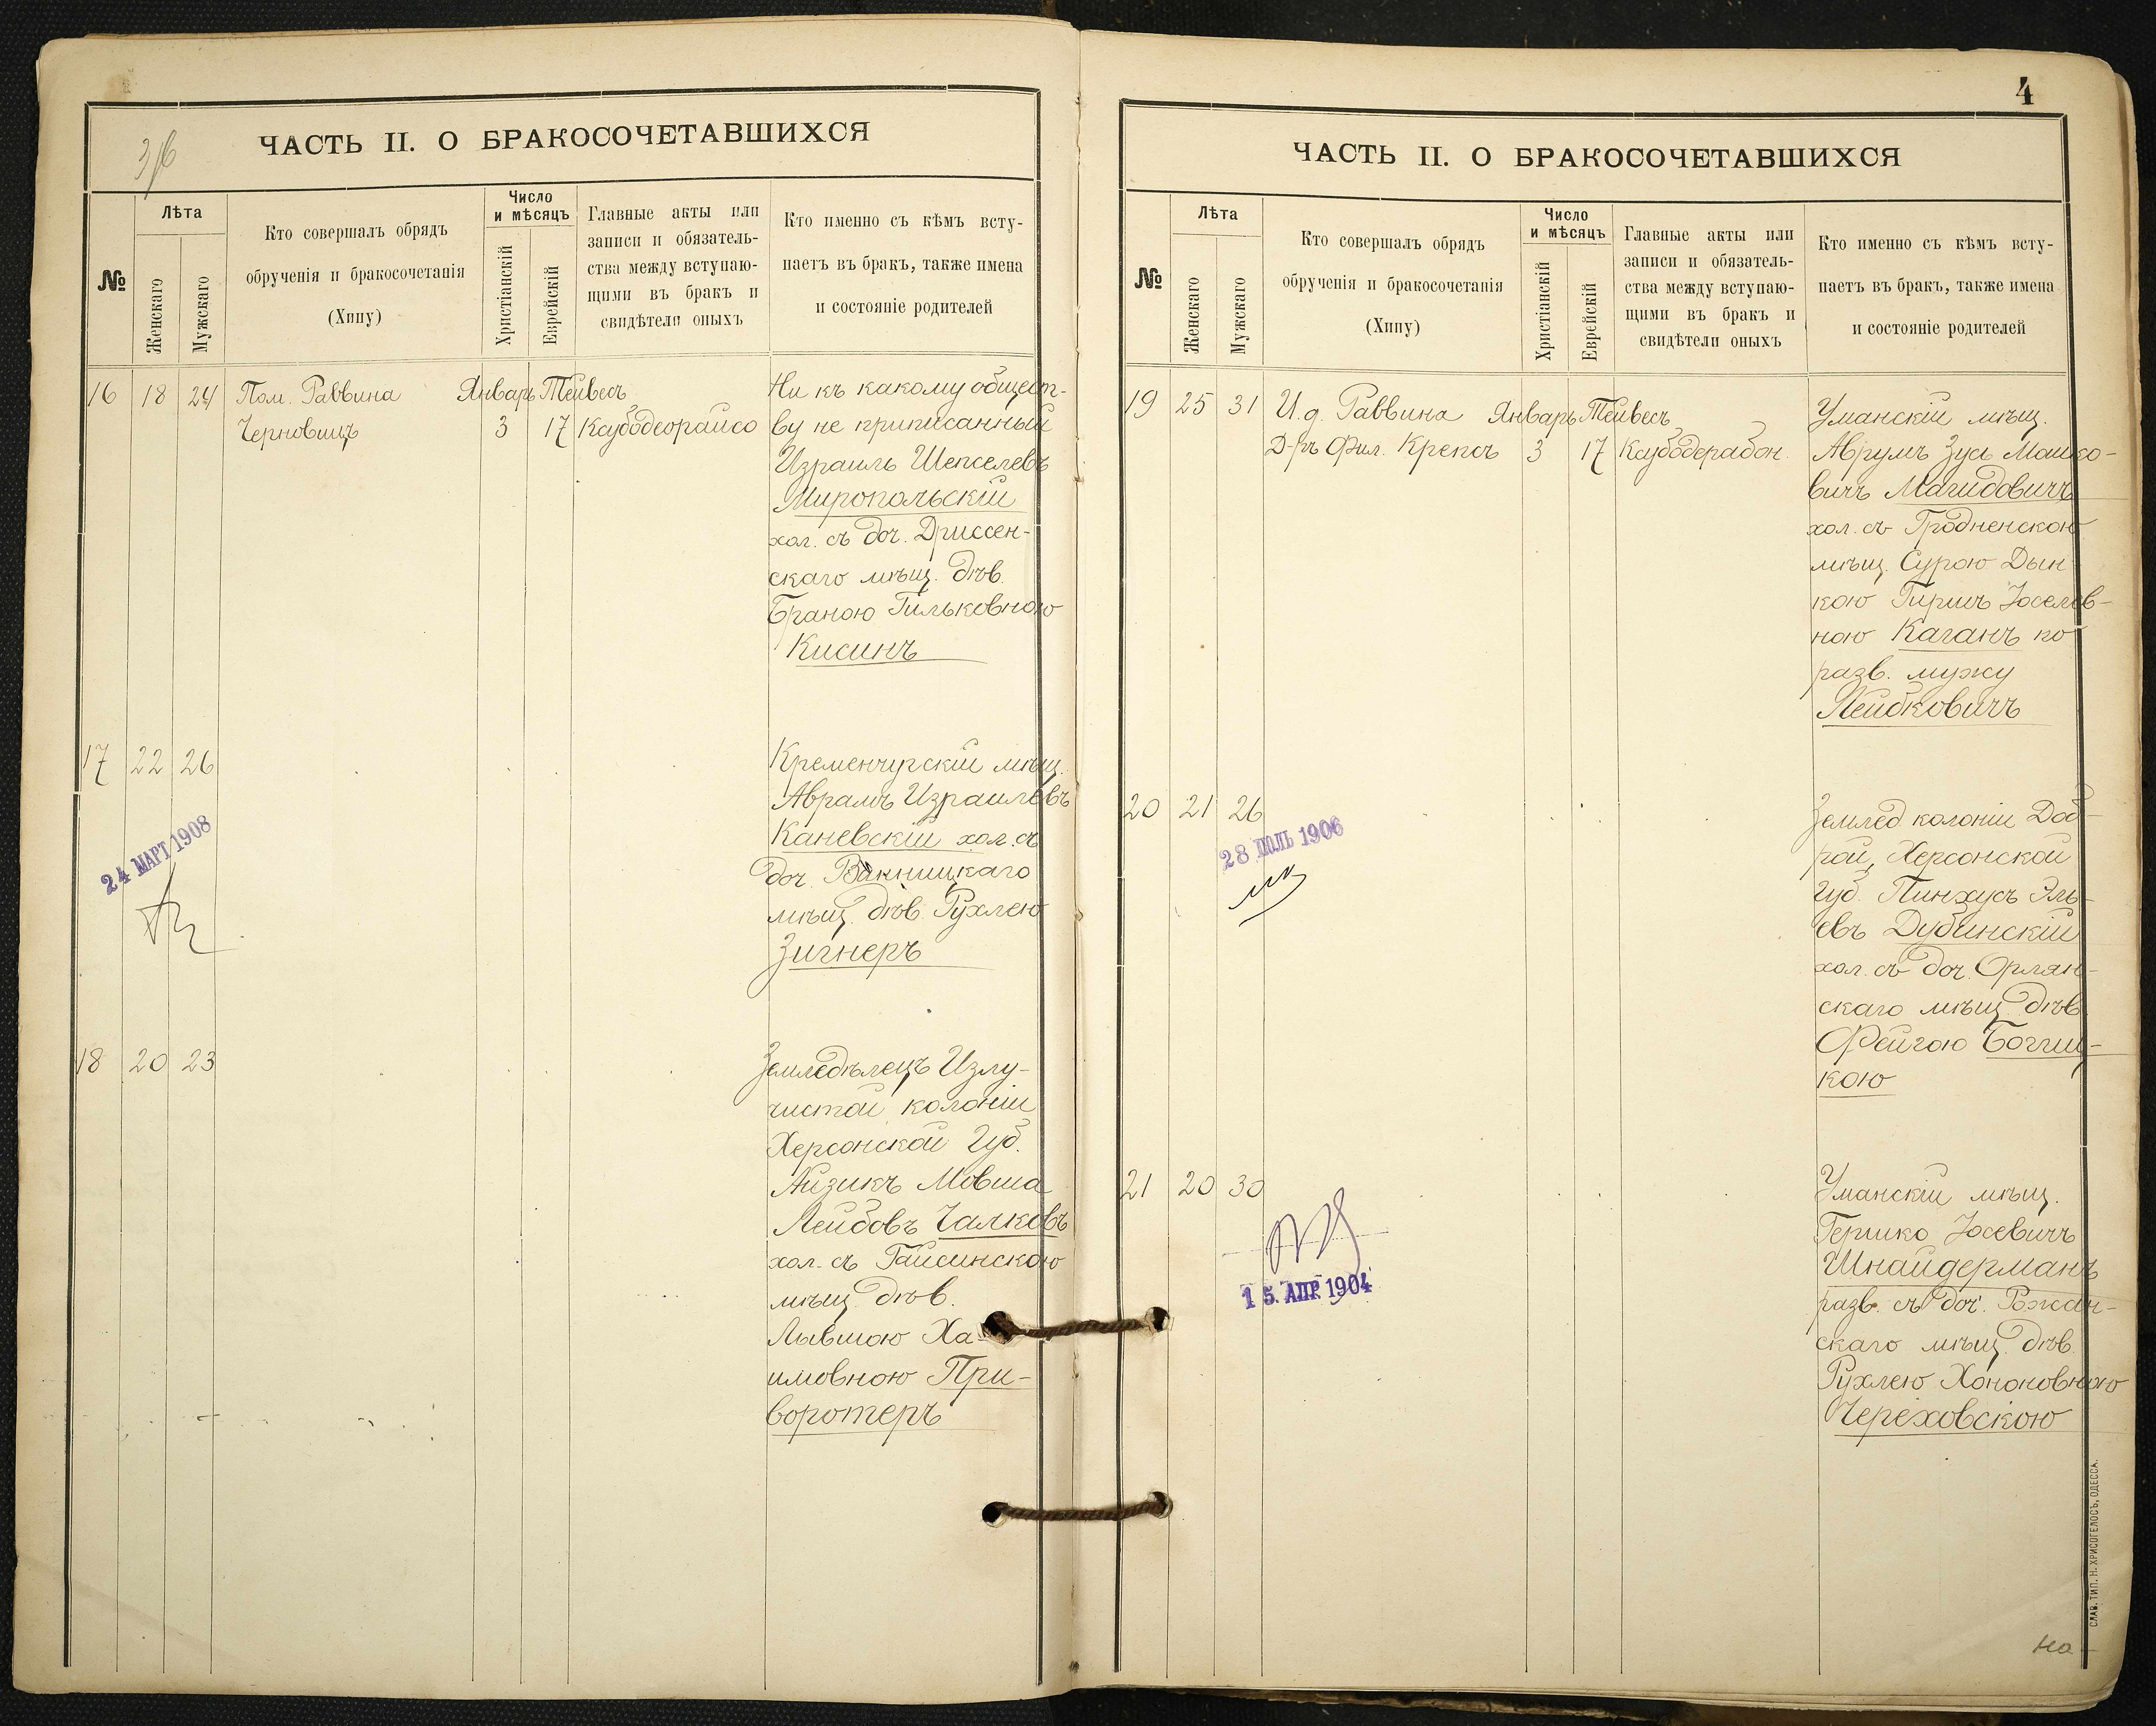 3/6
ЧАСТЬ II. О БРАКОСОЧЕТАВШИХСЯ
№
Лѣта
Женскаго
Мужскаго
Кто совершалъ обрядъ
обрученія и бракосочетанія
(Хипу)
Число
и мѣсяцъ
Христіанскій
Еврейскій
Главные акты или
записи и обязатель-
ства между вступаю-
щими въ бракъ и
свидѣтели оныхъ
Кто именно съ кѣмъ всту-
паетъ въ бракъ, также имена
и состояніе родителей
16 18 24 Пом. Раввина Январь Тейвесъ
Черновицъ 3 17 Ксубодеорайсо
Ни къ какому общест-
ву не приписанный
Израиль Шепселевъ
Миропольскій
хол. съ доч. Дриссен-
скаго мѣщ. дѣв.
Браною Гильковною
Кисинъ
17 22 26
24 МАРТ 1908
Кременчугскій мѣщ.
Абрамъ Израилевъ
Каневскій хол. съ
доч. Винницкаго
мѣщ. дѣв. Рухлею
Зигнеръ
18 20 23
Земледѣлецъ Излу-
чистой колоніи
Херсонской Губ.
Айзикъ Мовша
Лейбовъ Чалковъ
хол. съ Гайсинскою
мѣщ. дѣв.
Лывшою Ха-
имовною При-
воротеръ
4
ЧАСТЬ II. О БРАКОСОЧЕТАВШИХСЯ
№
Лѣта
Женскаго
Мужскаго
Кто совершалъ обрядъ
обрученія и бракосочетанія
(Хипу)
Число
и мѣсяцъ
Христіанскій
Еврейскій
Главные акты или
записи и обязатель-
ства между вступаю-
щими въ бракъ и
свидѣтели оныхъ
Кто именно съ кѣмъ всту-
паетъ въ бракъ, также имена
и состояніе родителей
19 25 31 И. д. Раввина Январь Тейвесъ
Д-ръ Фил. Крепсъ 3 17 Ксубодерабон.
Уманскій мѣщ.
Аврумъ Зусь Машко-
вичъ Магидовичъ
хол. съ Гродненскою
мѣщ. Сурою Дын-
кою Гиршъ Іоселев-
ною Каганъ по
разв. мужу
Лейбковичъ
20 21 26
28 ІЮЛЬ 1906
Землед. колоніи Доб-
рой, Херсонской
Губ. Пинхусъ Эль-
евъ Дубинскій
хол. съ доч. Орлян-
скаго мѣщ. дѣв.
Фейгою Богуц-
кою
21 20 30
15. АПР. 1904
Уманскій мѣщ.
Гершко Іосевичъ
Шнайдерманъ
разв. съ доч. Рожан-
скаго мѣщ. дѣв.
Рухлею Хононовною
Череховскою
СЛАВ. ТИП. Н. ХРИСОГЕЛОСЪ, ОДЕССА.
На